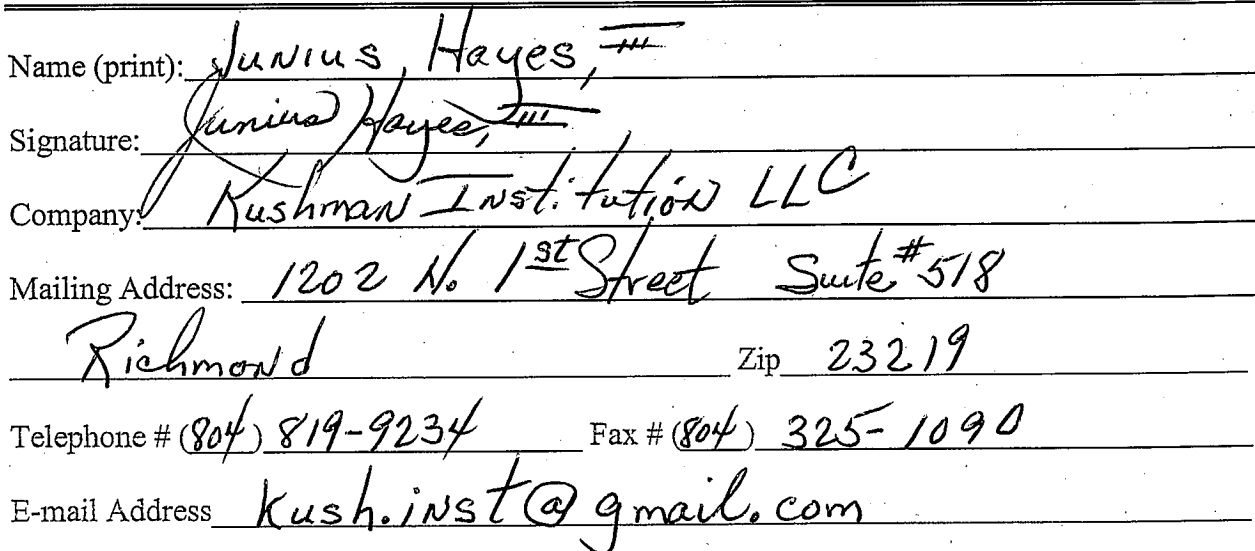 Name (print): Junius, Hayes, III
Signature: Junius Hayes, III
Company: Kushman Institution LLC
Mailing Address: 1202 N. 1st Street Suite #518
Richmond Zip 23219
Telephone # (804) 819-9234 Fax # (804) 325-1090
E-mail Address Kush.inst@gmail.com